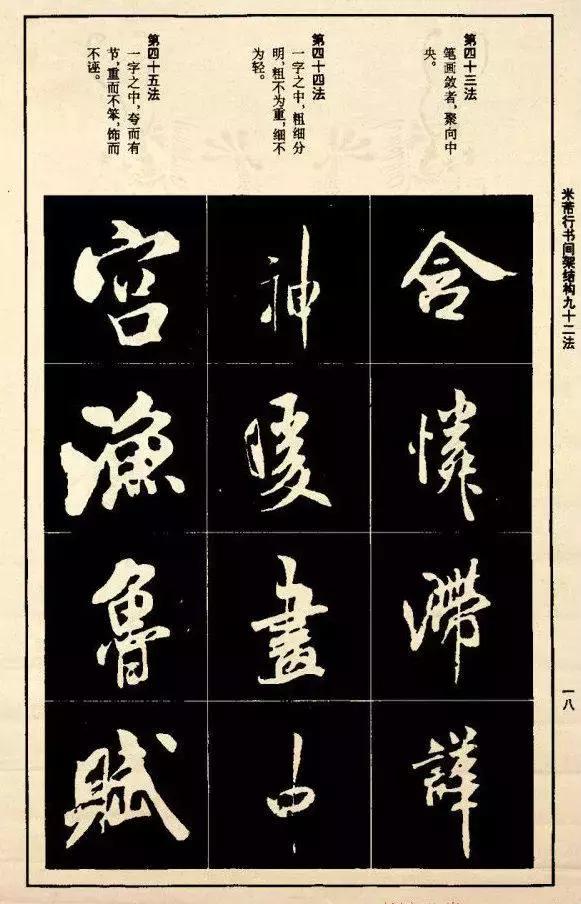 米芾行书间架结构九十二法
一八
第四十三法
笔画敛者，聚向中
央。
第四十四法
一字之中，粗细分
明，粗不为重，细不
为轻。
第四十五法
一字之中，夸而有
节，重而不笨，饰而
不诬。
含
怜
滞
譁
神
暖
畫
中
宫
漁
魯
赋